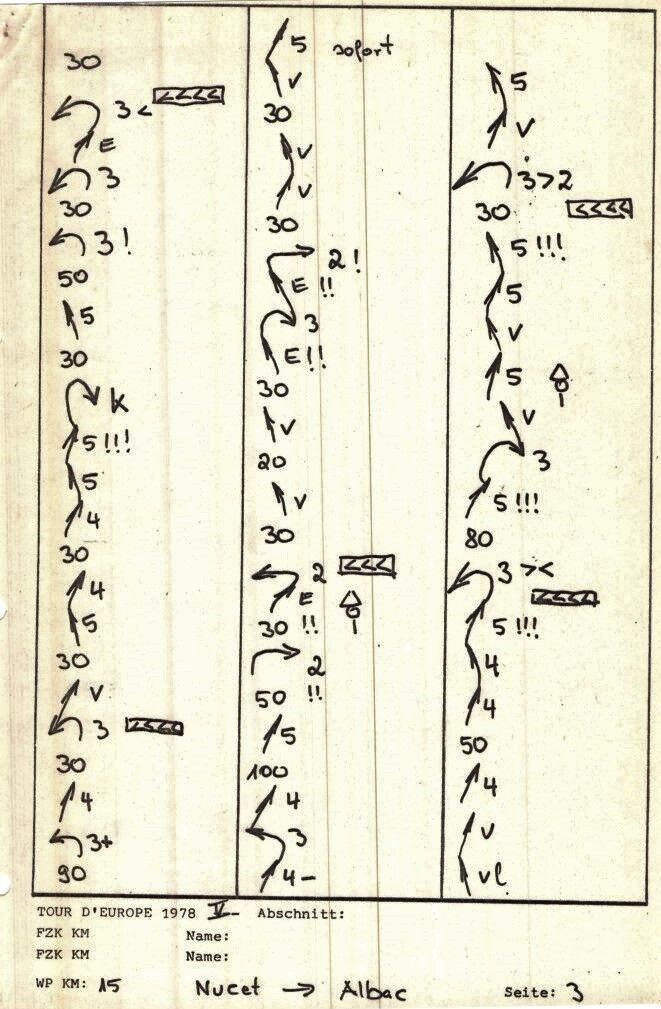 30
3 <
E
3
30
3!
50
5
30
K
5 !!!
5
4
30
4
5
30
V
3
30
4
3+
90
5 sofort
V
30
V
V
30
2!
E !!
3
E!!
30
V
20
V
30
2
E
30 !!
2
50 !!
5
100
4
3
4-
5
V
3>2
30
5 !!!
5
V
5
V
3
5 !!!
80
3 ><
5 !!!
4
4
50
4
V
vl
TOUR D'EUROPE 1978 V Abschnitt:
FZK KM Name:
FZK KM Name:
WP KM: 15 Nucet → Albac Seite: 3